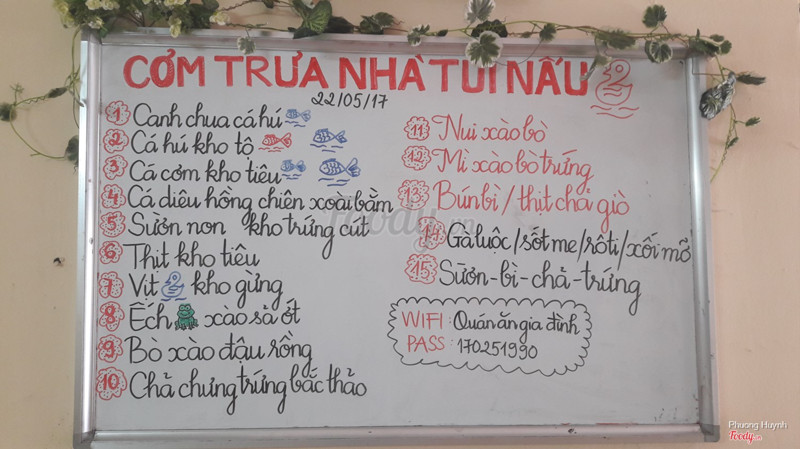 CƠM TRƯA NHÀ TUI NẤU
22/05/17
1 Canh chua cá hú
2 Cá hú kho tộ
3 Cá cơm kho tiêu
4 Cá diêu hồng chiên xoài bằm
5 Sườn non kho trứng cút
6 Thịt kho tiêu
7 Vịt kho gừng
8 Ếch xào sả ớt
9 Bò xào đậu rồng
10 Chả chưng trứng bắc thảo
11 Nui xào bò
12 Mì xào bò trứng
13 Bún bì / thịt chả giò
14 Gà luộc / sốt me / rôti / xối mỡ
15 Sườn - bì - chả - trứng
WIFI : Quán ăn gia đình
PASS : 170251990
Foody.vn
Phuong Huynh
Foody.vn